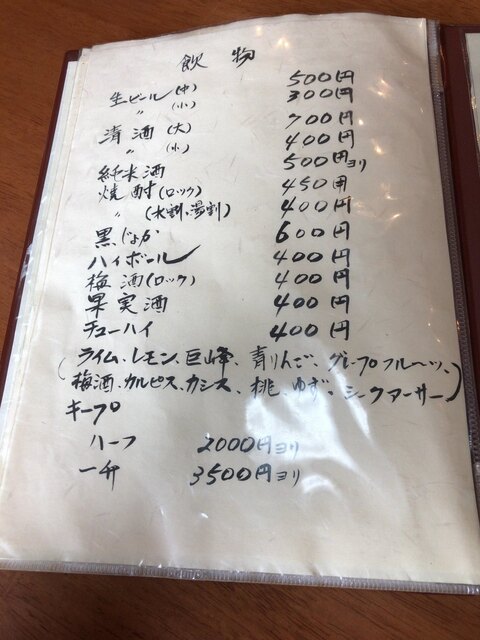 飲物
生ビール(中) 500円
〃 (小) 300円
清酒(大) 700円
〃 (小) 400円
純米酒 500円ヨリ
焼酎(ロック) 450円
〃 (水割、湯割) 400円
黒じょか 600円
ハイボール 400円
梅酒(ロック) 400円
果実酒 400円
チューハイ 400円
(ライム、レモン、巨峰、青りんご、グレープフルーツ、
梅酒、カルピス、カシス、桃、ゆず、シークァーサー)
キープ
ハーフ 2000円ヨリ
一升 3500円ヨリ